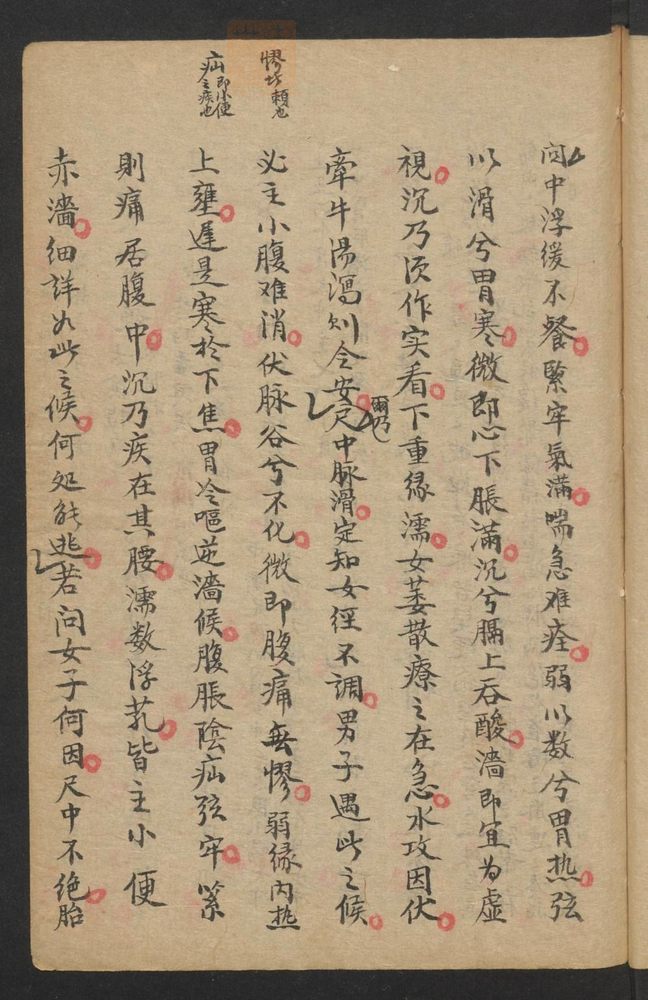 關中浮緩不餐緊牢氣滿喘急难痊弱以数兮胃热弦
以滑兮胃寒微即心下脹滿沉兮膈上吞酸濇即宜为虛
視沉乃须作实看下重缘濡女萎散療之在急水攻因伏
牽牛湯瀉則令安尺中脉滑定知女徑不調男子遇此之候
爾乃
必主小腹难消伏脉谷兮不化微即腹痛無憀弱缘内热
上壅遲是寒於下焦胃冷嘔逆濇候腹脹陰疝弦牢緊
則痛居腹中沉乃疾在其腰濡数浮芤皆主小便
赤濇細詳如此之候何处能逃若问女子何因尺中不绝胎
憀
賴也
疝即小便
之疾也